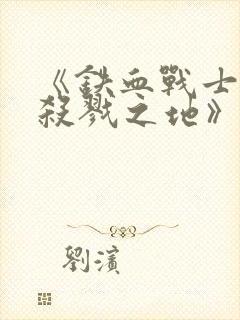 《鉄血戰士
殺戮之地》
劉濱